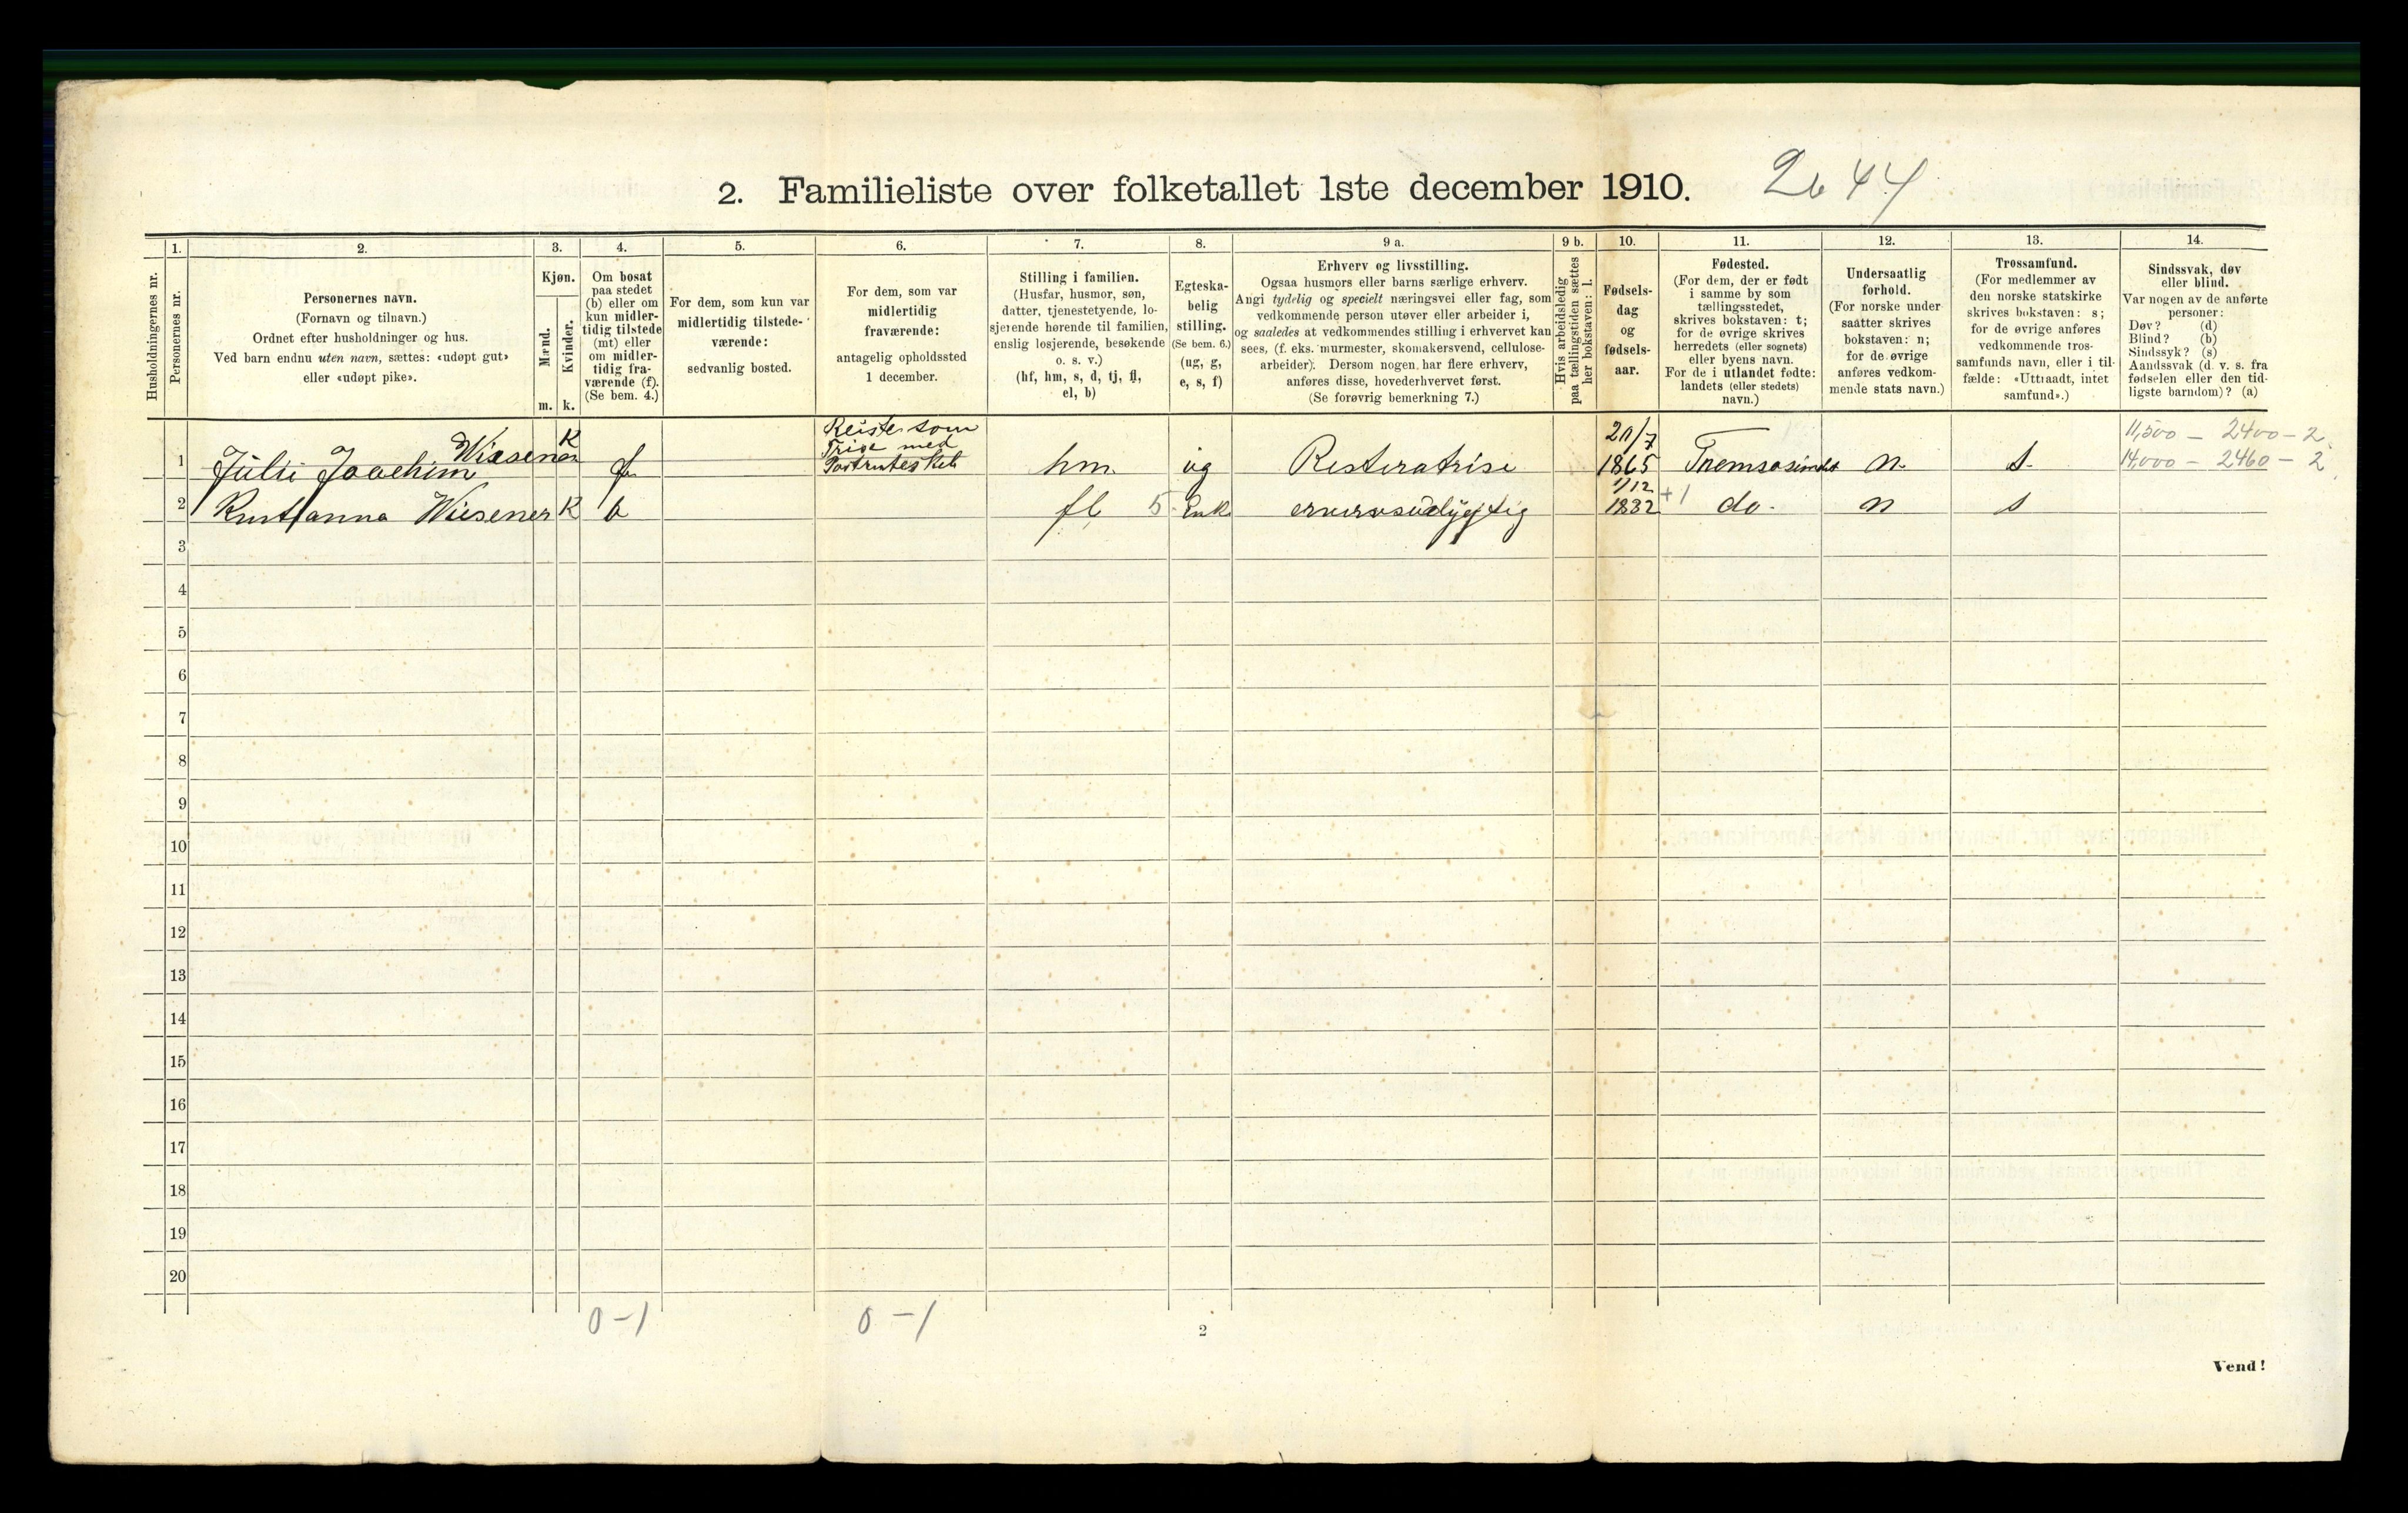 2. Familieliste over folketallet 1ste december 1910.
2644
1. 2. 3. 4. 5. 6. 7. 8. 9 a. 9 b. 10. 11. 12. 13. 14.
Husholdningernes nr.
Personernes nr.
Personernes navn.
(Fornavn og tilnavn.)
Ordnet efter husholdninger og hus.
Ved barn endnu uten navn, sættes: «udøpt gut»
eller «udøpt pike».
Kjøn.
Mænd.
Kvinder.
m. k.
Om bosat
paa stedet
(b) eller om
kun midler-
tidig tilstede
(mt) eller
om midler-
tidig fra-
værende (f).
(Se bem. 4.)
For dem, som kun var
midlertidig tilstede-
værende:
sedvanlig bosted.
For dem, som var
midlertidig
fraværende:
antagelig opholdssted
1 december.
Stilling i familien.
(Husfar, husmor, søn,
datter, tjenestetyende, lo-
sjerende hørende til familien,
enslig losjerende, besøkende
o. s. v.)
(hf, hm, s, d, tj, fl,
el, b)
Egteska-
belig
stilling.
(Se bem. 6.)
(ug, g,
e, s, f)
Erhverv og livsstilling.
Ogsaa husmors eller barns særlige erhverv.
Angi tydelig og specielt næringsvei eller fag, som
vedkommende person utøver eller arbeider i,
og saaledes at vedkommendes stilling i erhvervet kan
sees, (f. eks. murmester, skomakersvend, cellulose-
arbeider). Dersom nogen har flere erhverv,
anføres disse, hovederhvervet først.
(Se forøvrig bemerkning 7.)
Hvis arbeidsledig
paa tællingstiden sættes
her bokstaven: l.
Fødsels-
dag
og
fødsels-
aar.
Fødested.
(For dem, der er født
i samme by som
tællingsstedet,
skrives bokstaven: t;
for de øvrige skrives
herredets (eller sognets)
eller byens navn.
For de i utlandet fødte:
landets (eller stedets)
navn.)
Undersaatlig
forhold.
(For norske under-
saatter skrives
bokstaven: n;
for de øvrige
anføres vedkom-
mende stats navn.)
Trossamfund.
(For medlemmer av
den norske statskirke
skrives bokstaven: s;
for de øvrige anføres
vedkommende tros-
samfunds navn, eller i til-
fælde: «Uttraadt, intet
samfund».)
Sindssvak, døv
eller blind.
Var nogen av de anførte
personer:
Døv? (d)
Blind? (b)
Sindssyk? (s)
Aandssvak (d. v. s. fra
fødselen eller den tid-
ligste barndom)? (a)
11,500 - 2400 - 2
14,000 - 2460 - 2
1 Julii Joachim Wiesener K f Reiste som hm ug Risteratrise 20/7 1865 n. s.
2 Wiesener K b fl 5 Enk 1/12 1832 +1 do. n s
3
4
5
6
7
8
9
10
11
12
13
14
15
16
17
18
19
20
0-1 0-1
2
Vend!